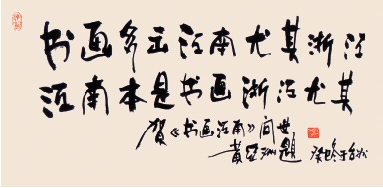 书画多在江南尤其浙江
江南本是书画浙江尤其
贺《书画江南》问世
黄亚洲题